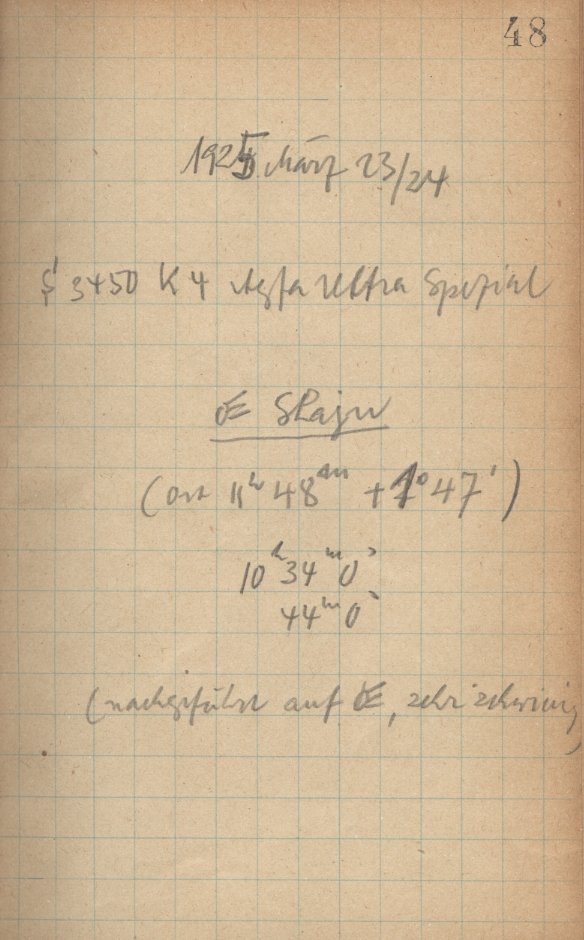 48
1925 März 23/24
S 3450 K 4 Agfa Ultra Spezial
☄ Shajn
(Ort 11h 48m + 1° 47')
10h 34m 0s
44m 0s
(nachgeführt auf ☄, sehr schwierig)